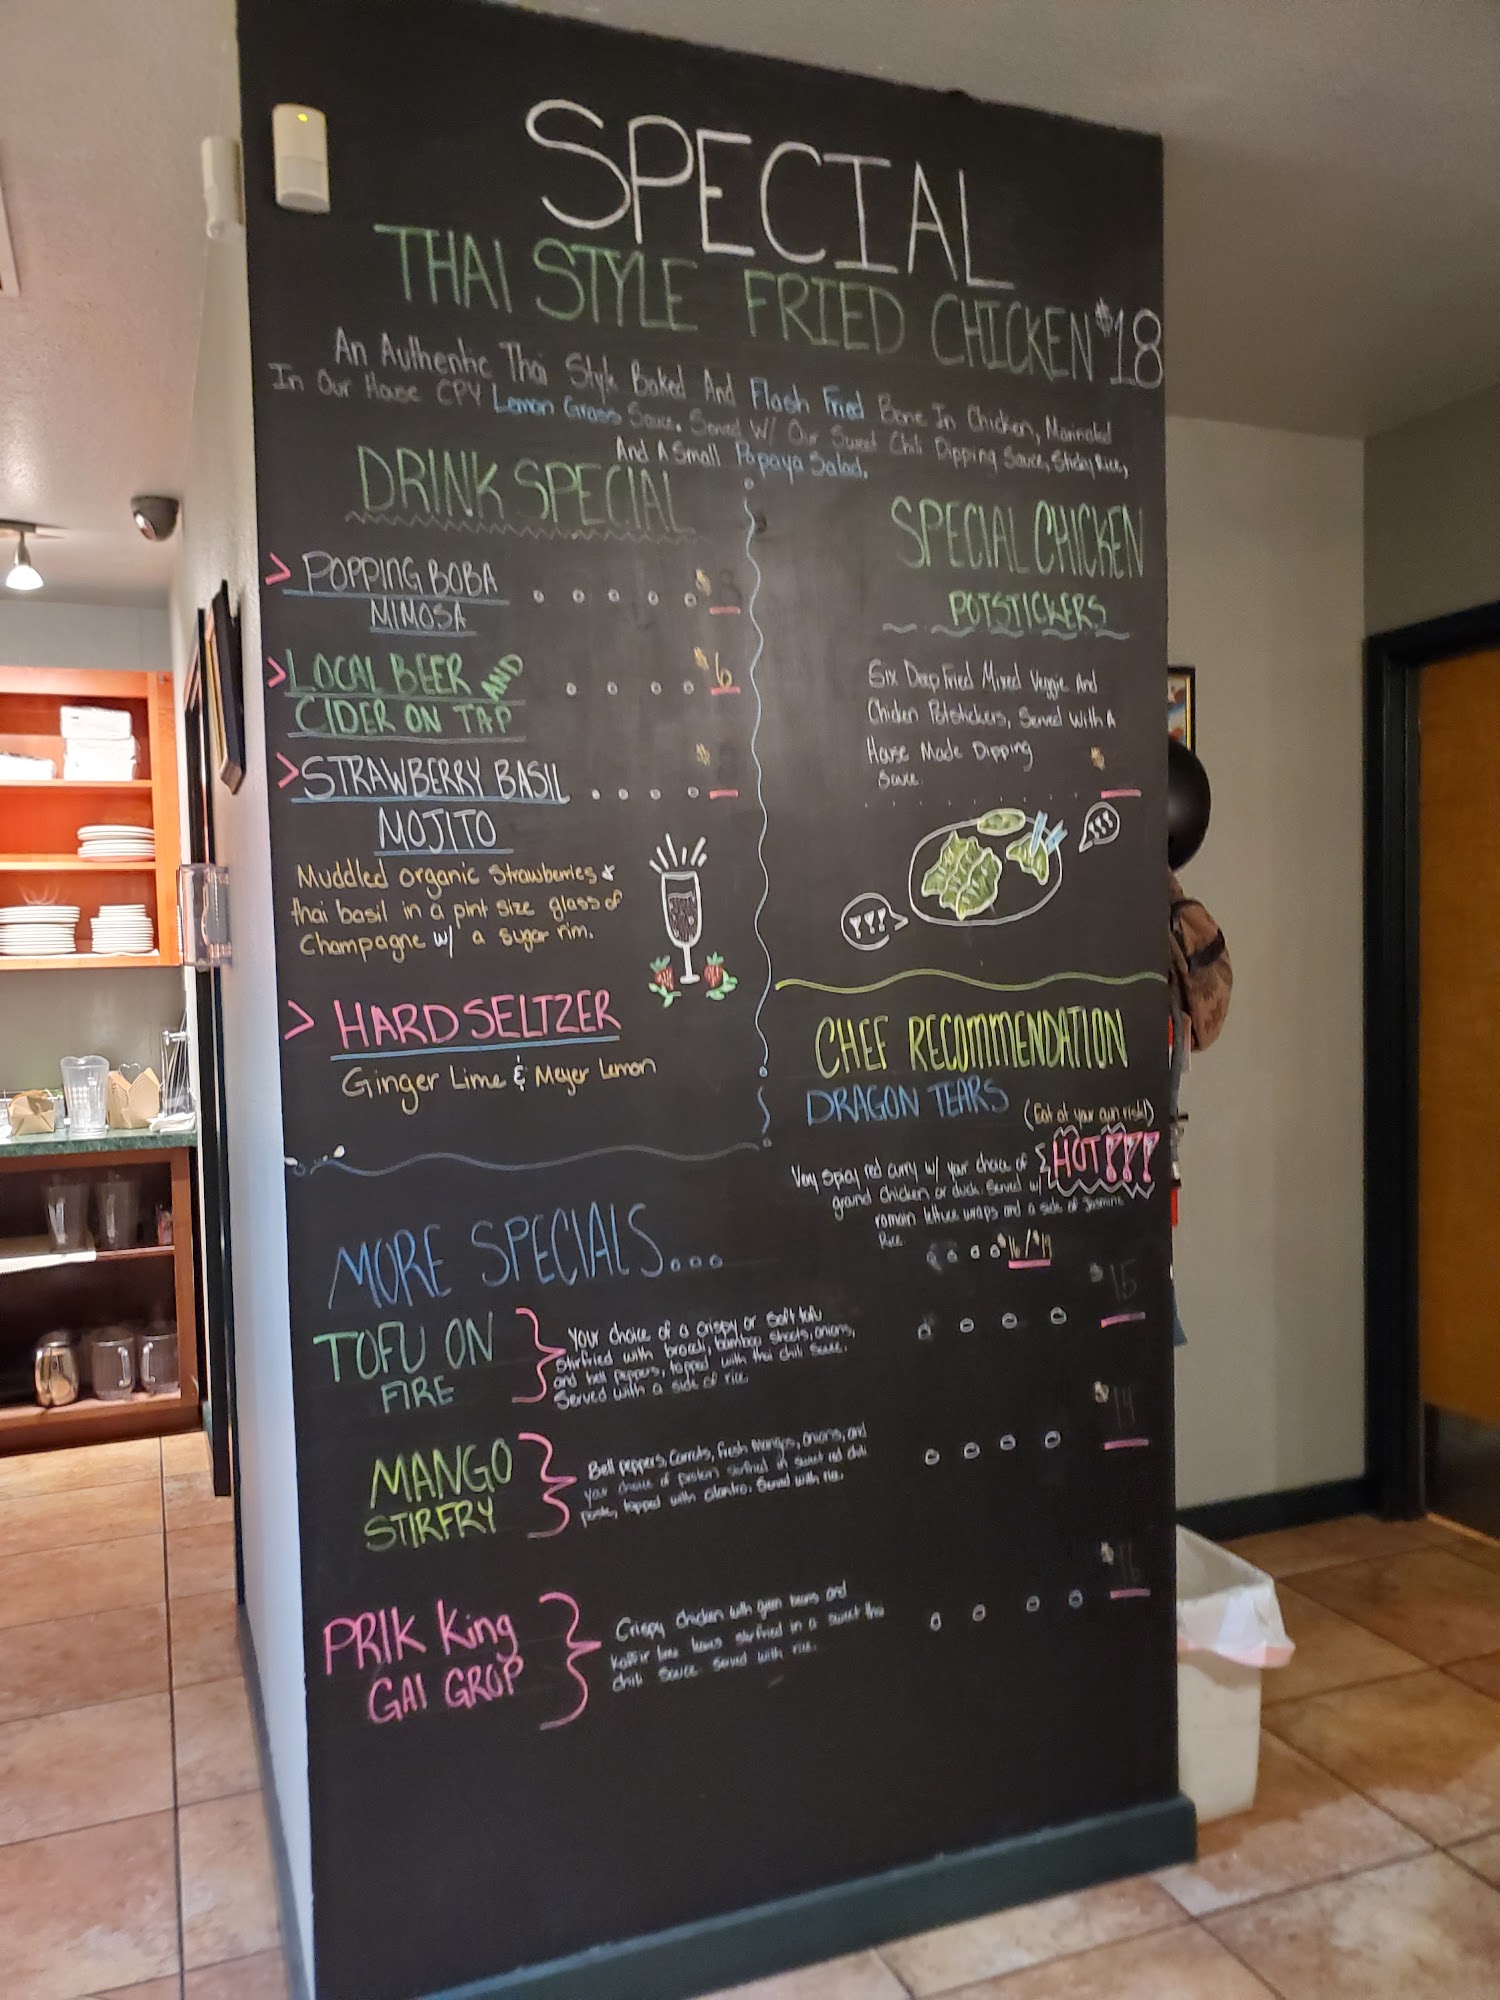 SPECIAL
THAI STYLE FRIED CHICKEN $18
An Authentic Thai Style Baked And Flash Fried Bone In Chicken, Marinated
In Our House CPY Lemon Grass Sauce. Served W/ Our Sweet Chili Dipping Sauce, Sticky Rice,
And A Small Papaya Salad.
DRINK SPECIAL
> POPPING BOBA $8
MIMOSA
> LOCAL BEER AND $6
CIDER ON TAP
> STRAWBERRY BASIL $8
MOJITO
Muddled organic strawberries &
thai basil in a pint size glass of
Champagne w/ a sugar rim.
> HARD SELTZER
Ginger Lime & Meyer Lemon
SPECIAL CHICKEN
POTSTICKERS
Six Deep Fried Mixed Veggie And
Chicken Potstickers, Served With A
House Made Dipping
Sauce. $
!!!
!!!
CHEF RECOMMENDATION
DRAGON TEARS (Eat at your own risk!)
Very spicy red curry w/ your choice of HOT!!!
ground chicken or duck. Served w/
romain lettuce wraps and a side of Jasmine
Rice. $16/$19
MORE SPECIALS...
TOFU ON
FIRE
Your choice of a crispy or soft tofu
stirfried with brocoli, bamboo shoots, onions,
and bell peppers, topped with thai chili sauce.
Served with a side of rice.
$15
MANGO
STIRFRY
Bell peppers, Carrots, fresh mangos, onions, and
your choice of protein stirfried in sweet red chili
paste, topped with cilantro. Served with rice.
$14
PRIK King
GAI GROP
Crispy chicken with green beans and
kaffir lime leaves stirfried in a sweet thai
chili sauce. served with rice.
$16